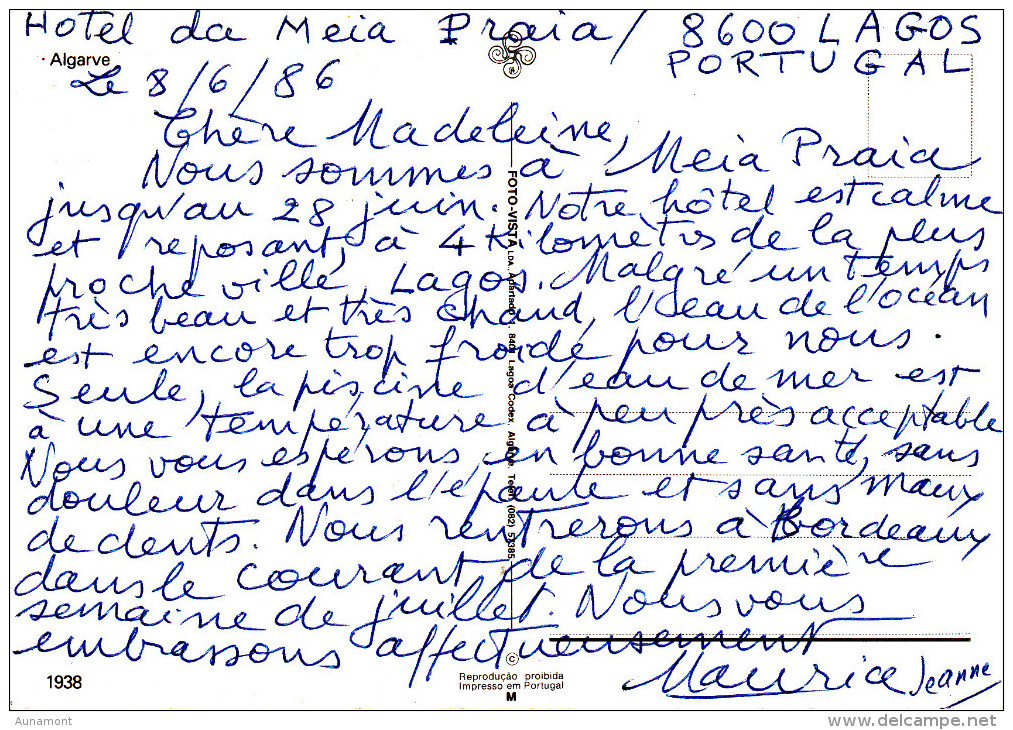 Hotel da Meia Praia / 8600 LAGOS
PORTUGAL
Algarve
Le 8/6/86
Chère Madeleine,
Nous sommes à Meia Praia
jusqu'au 28 juin. Notre hôtel est calme
et reposant, à 4 Kilomètrs de la plus
proche ville, Lagos. Malgré un temps
très beau et très chaud, l'eau de l'océan
est encore trop froide pour nous.
Seule, la piscine d'eau de mer est
à une température à peu près acceptable
Nous vous espérons, en bonne santé, sans
douleur dans l'épaule et sans maux
de dents. Nous rentrerons à Bordeaux
dans le courant de la première
semaine de juillet. Nous vous
embrassons affectueusement
Maurice Jeanne
FOTO-VISTA LDA., Apartado 1, 8401 Lagoa Codex, Algarve, Telef. (082) 57385
©
Reprodução proibida
Impresso em Portugal
M
1938
Aunamont
delcampe.net